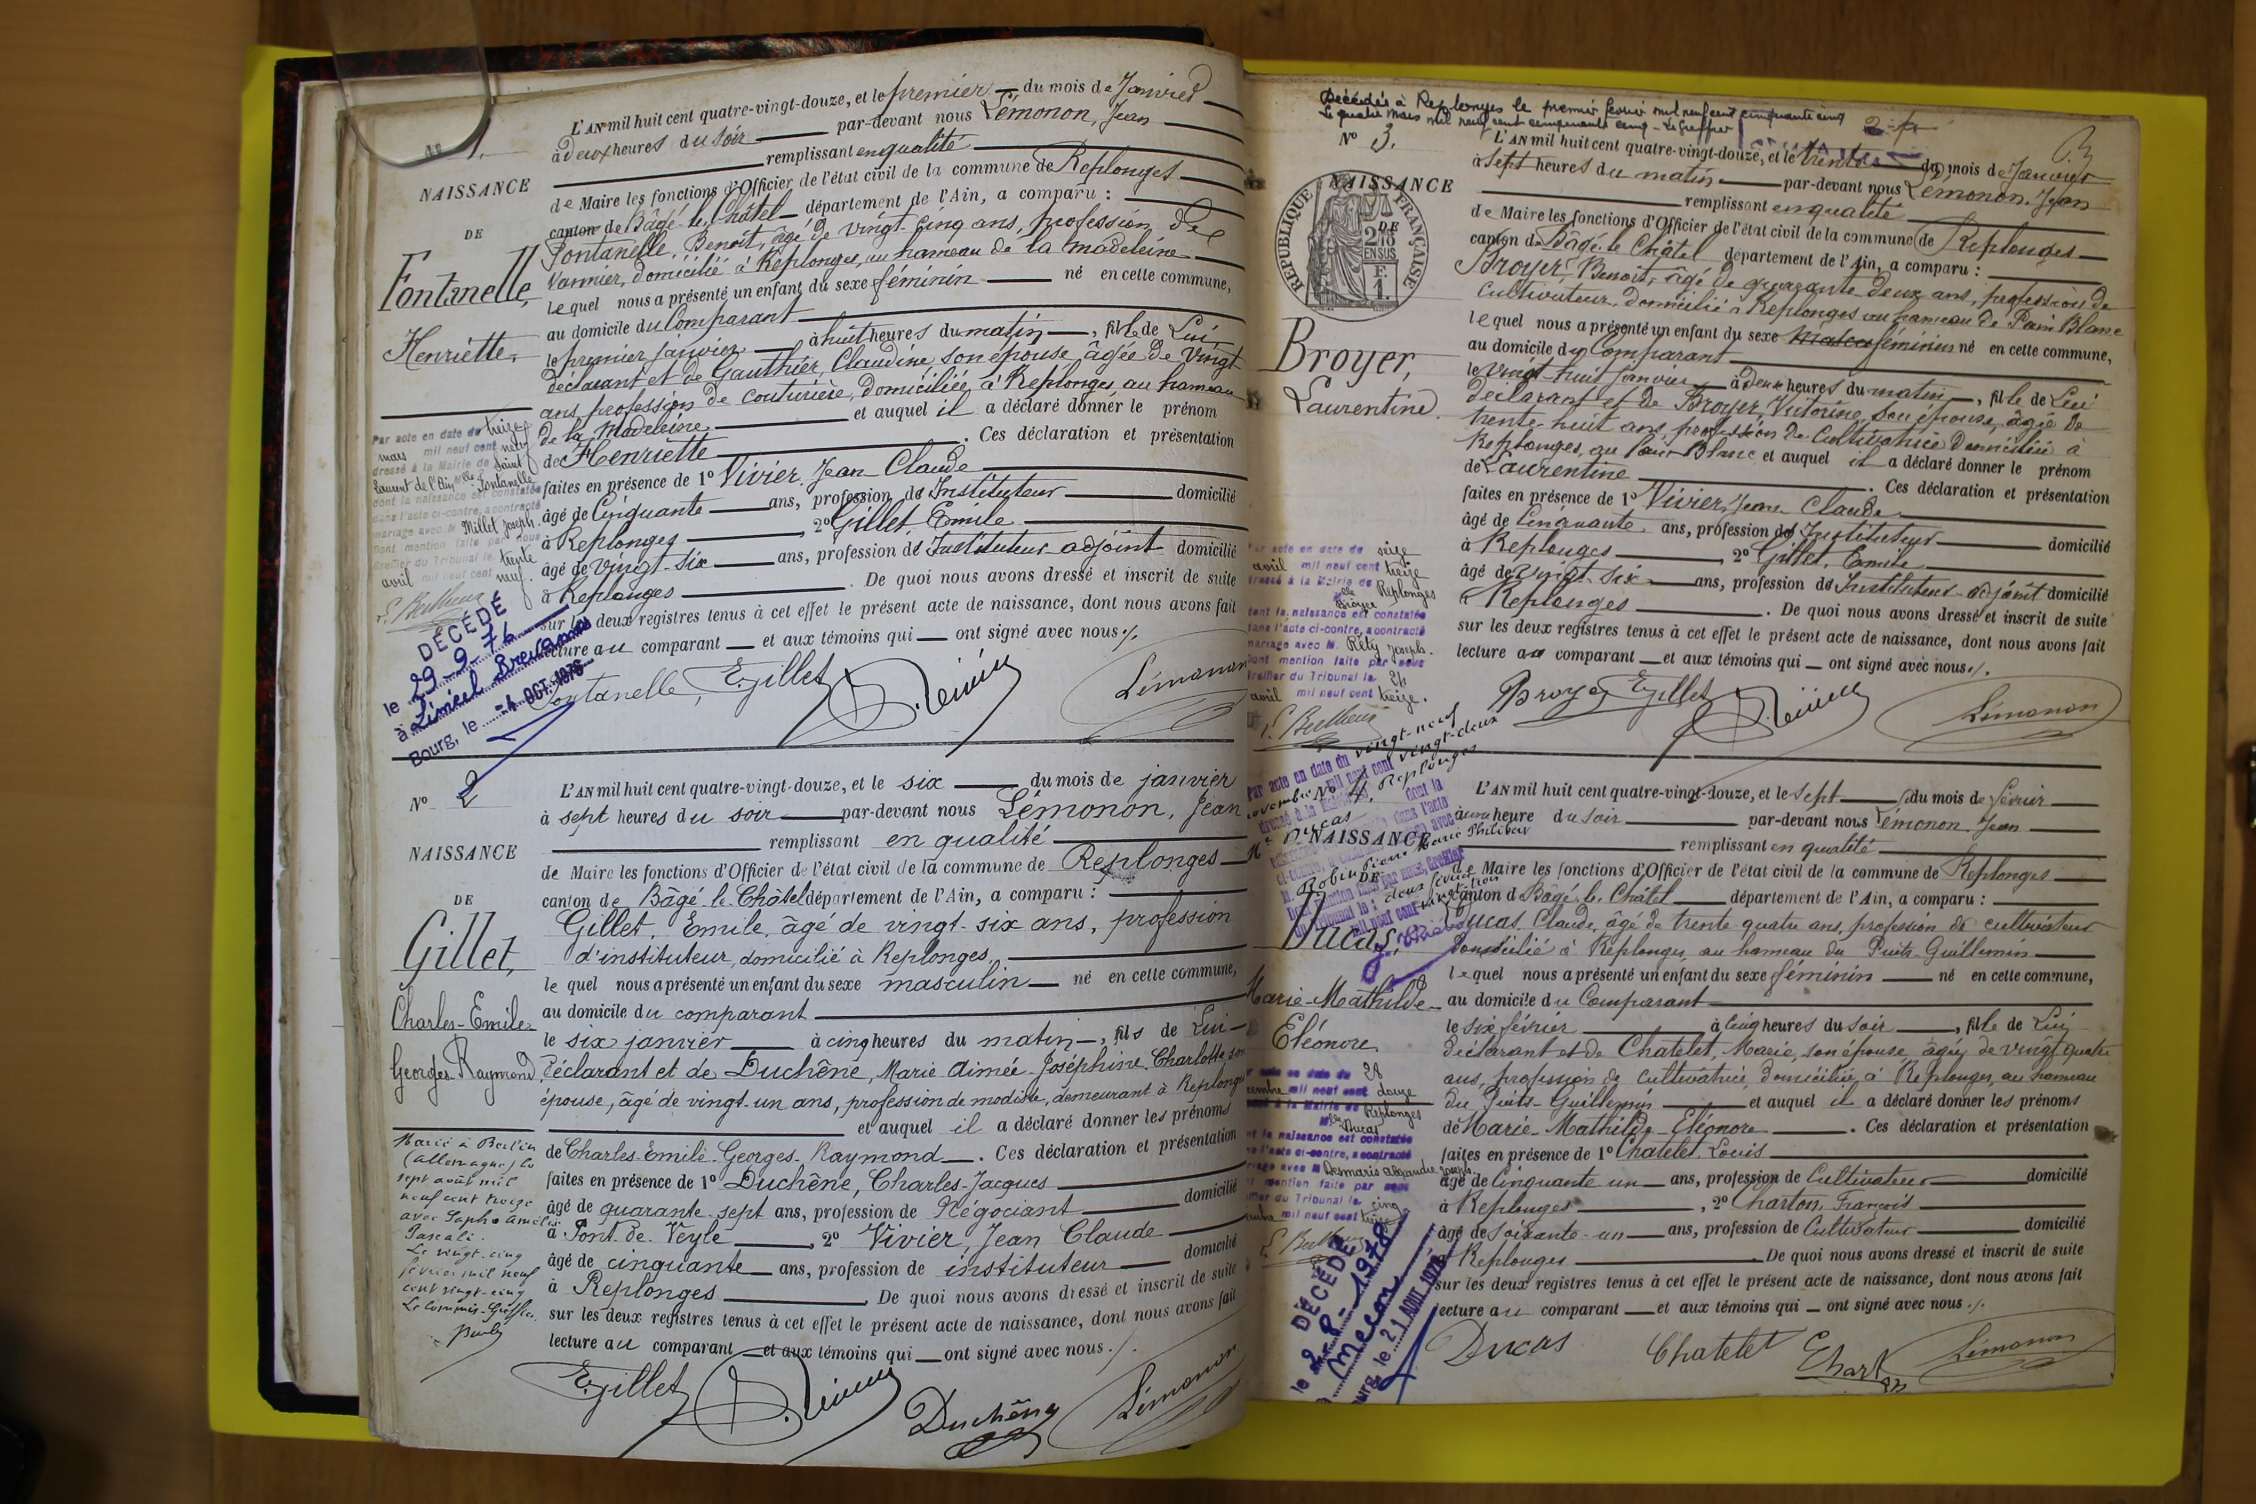 No 1.
NAISSANCE
DE
Fontanelle,
Henriette.
L'AN mil huit cent quatre-vingt-douze, et le premier du mois de Janvier
à deux heures du soir par-devant nous Lémonon, Jean
remplissant en qualité
de Maire les fonctions d'Officier de l'état civil de la commune de Replonges
canton de Bâgé-le-Châtel département de l'Ain, a comparu :
Fontanelle, Benoît, âgé de vingt-cinq ans, profession de
Vannier, domicilié à Replonges, au hameau de la Madeleine
lequel nous a présenté un enfant du sexe féminin né en cette commune,
au domicile du Comparant
le premier janvier à huit heures du matin, fille de Lui
déclarant et de Gauthier, Claudine son épouse âgée de vingt
ans, profession de couturière, domiciliée à Replonges au hameau
de la Madeleine et auquel il a déclaré donner le prénom
de Henriette. Ces déclaration et présentation
faites en présence de 1o Vivier, Jean-Claude
âgé de Cinquante ans, profession d'Instituteur domicilié
à Replonges, 2o Gillet Emile
âgé de vingt-six ans, profession d'Instituteur adjoint domicilié
à Replonges. De quoi nous avons dressé et inscrit de suite
sur les deux registres tenus à cet effet le présent acte de naissance, dont nous avons fait
lecture au comparant et aux témoins qui ont signé avec nous./.
Fontanelle, E. Gillet Vivier Lémonon
Par acte en date du treize
mars mil neuf cent neuf
dressé à la Mairie de Saint
Laurent de l'Ain Mlle Fontanelle
dont la naissance est constatée
dans l'acte ci-contre, a contracté
mariage avec M. Millet Joseph.
Dont mention faite par nous
Greffier du Tribunal le trente
avril mil neuf cent neuf.
DÉCÉDÉ
le 29-9-76
à Limeil Brevannes
Bourg, le -4 OCT. 1976
No 2
NAISSANCE
DE
Gillet,
Charles-Emile-
Georges-Raymond
L'AN mil huit cent quatre-vingt-douze, et le six du mois de janvier
à sept heures du soir par-devant nous Lémonon, Jean
remplissant en qualité
de Maire les fonctions d'Officier de l'état civil de la commune de Replonges
canton de Bâgé-le-Châtel département de l'Ain, a comparu :
Gillet, Emile, âgé de vingt-six ans, profession
d'instituteur, domicilié à Replonges,
lequel nous a présenté un enfant du sexe masculin né en cette commune,
au domicile du comparant
le six janvier à cinq heures du matin, fils de Lui
déclarant et de Duchêne, Marie Aimée Joséphine Charlotte son
épouse, âgée de vingt-un ans, profession de modiste, demeurant à Replonges
et auquel il a déclaré donner les prénoms
de Charles-Emile-Georges-Raymond. Ces déclaration et présentation
faites en présence de 1o Duchêne, Charles-Jacques
âgé de quarante-sept ans, profession de Négociant domicilié
à Pont-de-Veyle, 2o Vivier, Jean Claude
âgé de cinquante ans, profession de instituteur domicilié
à Replonges. De quoi nous avons dressé et inscrit de suite
sur les deux registres tenus à cet effet le présent acte de naissance, dont nous avons fait
lecture au comparant et aux témoins qui ont signé avec nous./.
E. Gillet Vivier Duchêne Lémonon
Marié à Berlin
(allemagne) le
sept août mil
neuf cent treize
avec Sapho Amélie
Pascali.
Le vingt-cinq
février mil neuf
cent vingt-cinq
Le Commis-Greffier
Décédée à Replonges le premier février mil neuf cent cinquante cinq
Le quatre mars mil neuf cent cinquante cinq - Le Greffier
No 3.
NAISSANCE
DE
RÉPUBLIQUE FRANÇAISE
Broyer,
Laurentine.
L'AN mil huit cent quatre-vingt-douze, et le trente du mois de Janvier
à sept heures du matin par-devant nous Lémonon, Jean
remplissant en qualité
de Maire les fonctions d'Officier de l'état civil de la commune de Replonges
canton de Bâgé-le-Châtel département de l'Ain, a comparu :
Broyer, Benoît, âgé de quarante-deux ans, profession de
cultivateur, domicilié à Replonges au hameau de Pain Blanc
lequel nous a présenté un enfant du sexe féminin né en cette commune,
au domicile du Comparant
le vingt-huit janvier à deux heures du matin, fille de Lui
déclarant et de Broyer, Victorine, son épouse, âgée de
trente-huit ans, profession de Cultivatrice domiciliée à
Replonges, au Pain Blanc et auquel il a déclaré donner le prénom
de Laurentine. Ces déclaration et présentation
faites en présence de 1o Vivier, Jean Claude
âgé de Cinquante ans, profession d'Instituteur domicilié
à Replonges, 2o Gillet, Emile
âgé de vingt-six ans, profession d'Instituteur-adjoint domicilié
à Replonges. De quoi nous avons dressé et inscrit de suite
sur les deux registres tenus à cet effet le présent acte de naissance, dont nous avons fait
lecture au comparant et aux témoins qui ont signé avec nous./.
Broyer E. Gillet Vivier Lémonon
Par acte en date du seize
avril mil neuf cent treize
dressé à la Mairie de Replonges
Mlle Broyer
dont la naissance est constatée
dans l'acte ci-contre, a contracté
mariage avec M. Réty Joseph.
Dont mention faite par nous
Greffier du Tribunal le 24
avril mil neuf cent treize.
No 4.
NAISSANCE
DE
Ducas,
Marie-Mathilde-
Eléonore
Par acte en date du vingt-neuf
novembre mil neuf cent vingt-deux
dressé à la Replonges
dont la
Ducas
dans l'acte
ci-contre, avec
M. Robin Pierre Marie Philibert
Dont mention faite par nous, Greffier
du Tribunal le deux février
mil neuf cent vingt-trois
L'AN mil huit cent quatre-vingt-douze, et le sept du mois de février
à une heure du soir par-devant nous Lémonon, Jean
remplissant en qualité
de Maire les fonctions d'Officier de l'état civil de la commune de Replonges
canton de Bâgé-le-Châtel département de l'Ain, a comparu :
Ducas, Claude, âgé de trente-quatre ans, profession de cultivateur
domicilié à Replonges, au hameau du Puits-Guillemin
lequel nous a présenté un enfant du sexe féminin né en cette commune,
au domicile du Comparant
le six février à cinq heures du soir, fille de Lui
déclarant et de Chatelet, Marie, son épouse, âgée de vingt-quatre
ans, profession de cultivatrice, domiciliée à Replonges, au hameau
du Puits-Guillemin et auquel il a déclaré donner les prénoms
de Marie-Mathilde-Eléonore. Ces déclaration et présentation
faites en présence de 1o Chatelet, Louis
âgé de Cinquante-un ans, profession de Cultivateur domicilié
à Replonges, 2o Charton, François
âgé de soixante-un ans, profession de Cultivateur domicilié
à Replonges. De quoi nous avons dressé et inscrit de suite
sur les deux registres tenus à cet effet le présent acte de naissance, dont nous avons fait
lecture au comparant et aux témoins qui ont signé avec nous./.
Ducas Chatelet Lémonon
Par acte en date du 28
mil neuf cent douze
à la Mairie de Replonges
Mlle Ducas
dont la naissance est constatée
dans l'acte ci-contre, a contracté
mariage avec M Desmaris Alexandre Joseph.
Dont mention faite par nous
Greffier du Tribunal le cinq
mil neuf cent treize
DÉCÉDÉ
le 2-8-1978
Macon
Bourg, le 21 AOUT 1978